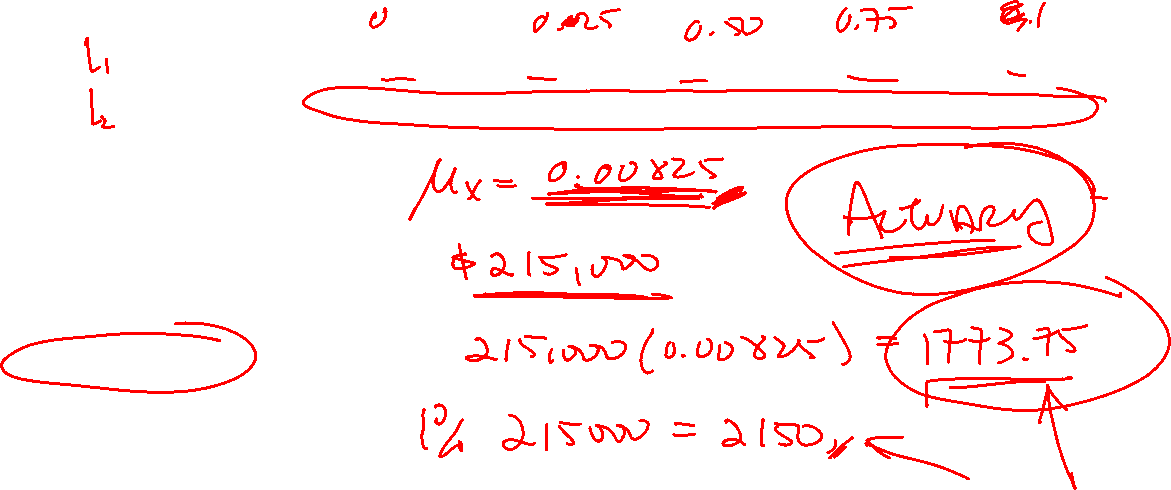 0 0.025 0.50 0.75 .1
L1
L2
μx = 0.00825
Actuary
$215,000
215,000(0.00825) = 1773.75
1% 215000 = 2150